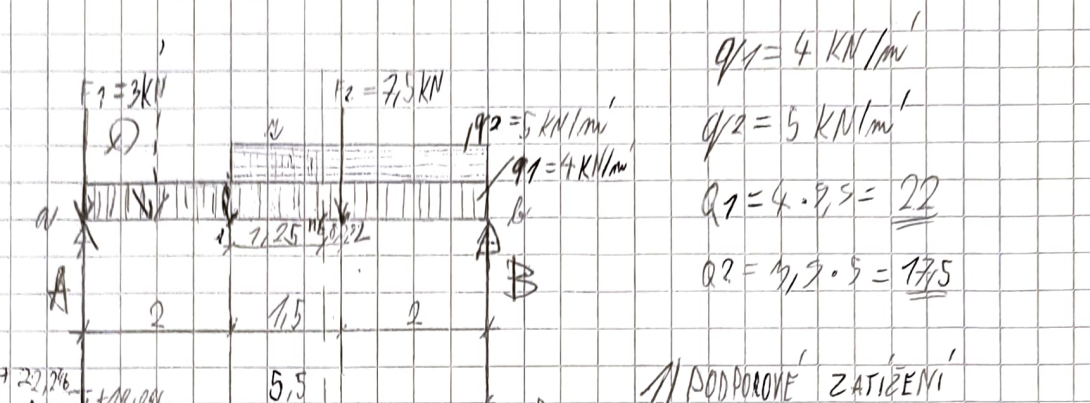 F1 = 3KN
F2 = 7,5 KN
q2 = 5 KN/m'
q1 = 4 KN/m'
a
b
1,25
A
B
2
1,5
2
5,5
q1 = 4 KN/m'
q2 = 5 KN/m'
Q1 = 4 . 5,5 = 22
Q2 = 3,5 . 5 = 17,5
1) PODPOROVÉ ZATÍŽENÍ